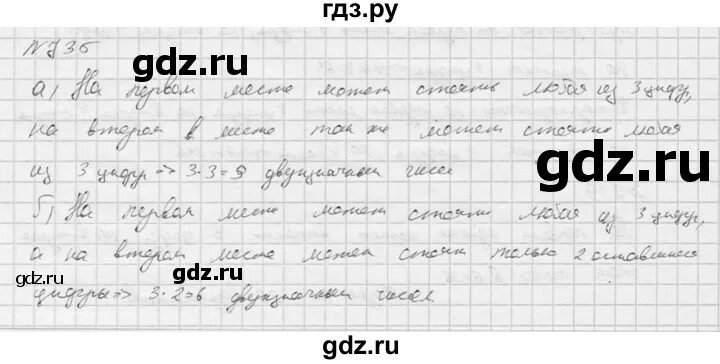 гдз.ру
N 735
а) На первом месте может стоять любая из 3 цифр,
на втором месте так же может стоять любая
из 3 цифр => 3·3=9 двузначных чисел
б) На первом месте может стоять любая из 3 цифр,
а на втором месте может стоять только 2 оставшиеся
цифры => 3·2=6 двузначных чисел
gdz.ru
gdz.ru
gdz.ru
gdz.ru
gdz.ru
gdz.ru
gdz.ru
gdz.ru